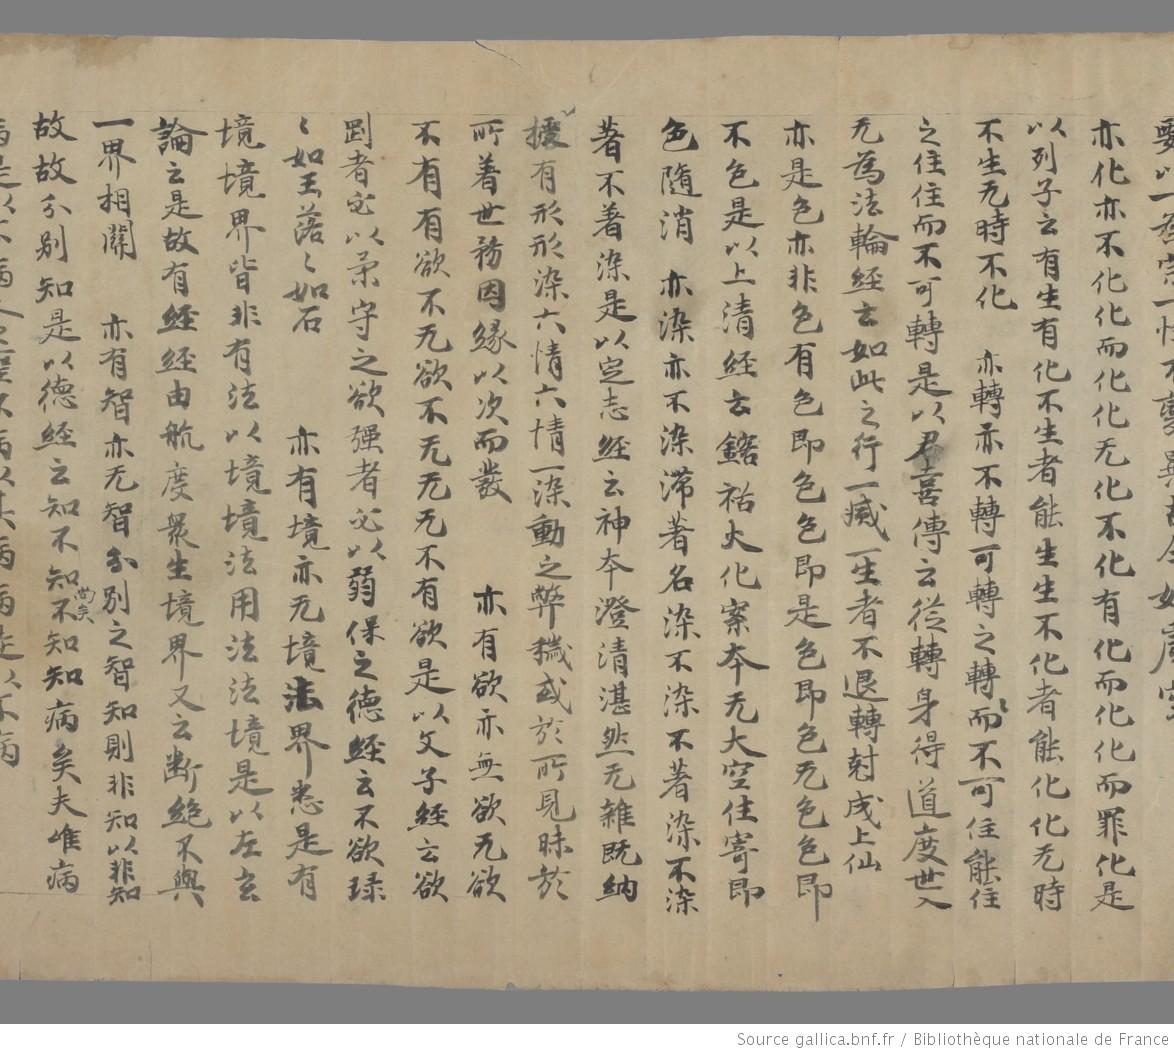 亦化亦不化化而化化无化不化有化而化化而罪化是
以列子云有生有化不生者能生生不化者能化化无時
不生无時不化　亦轉亦不轉可轉之轉而不可住能住
之住住而不可轉是以君喜傳云從轉身得道度世入
无為法輪經云如此之行一滅一生者不退轉尅成上仙
亦是色亦非色有色即色色即是色即色无色色即
不色是以上清經云鎔祐火化案本无大空住寄即
色隨消　亦染亦不染滯著名染不染不著染不染
著不著染是以定志經云神本澄清湛然无雜既納
擾有形形染六情六情一染動之弊穢或於所見昧於
所著世務因緣以次而發　亦有欲亦無欲无欲
不有有欲不无欲不无无无不有欲是以文子經云欲
剛者必以柔守之欲强者必以弱保之德經云不欲琭
〻如玉落〻如石　亦有境亦无境法界悉是有
境境界皆非有法以境境法用法法境是以左玄
論云是故有經經由航度衆生境界又云断絶不與
一界相關　亦有智亦无智分別之智知則非知以非知
故故分別知是以德經云知不知尚矣不知知病矣夫唯病